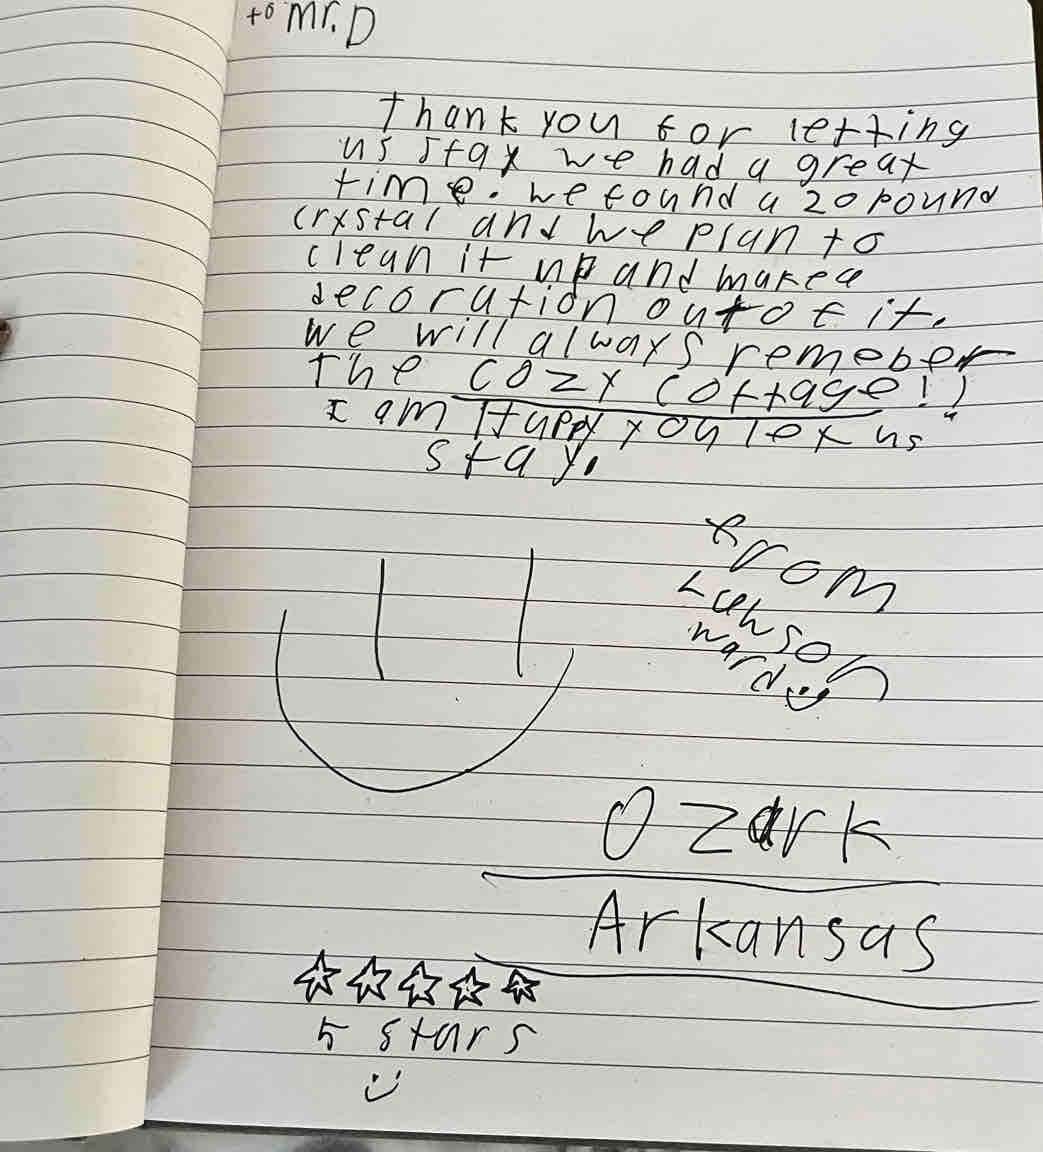 to Mr. D
Thank you for letting
us stay we had a great
time. we found a 20 pound
crystal and we plan to
clean it up and make a
decoration out of it.
we will always remeber
the cozy cottage!!
I am Happy you let us
stay.
From
ward
Ozark
Arkansas
5 stars